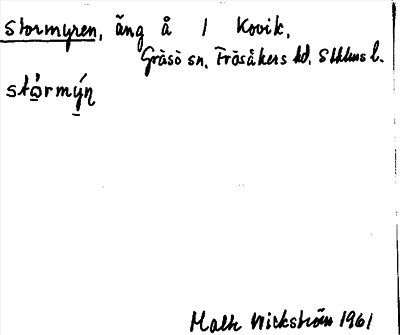 Stormyren, äng å 1 Kovik,
Gräsö sn. Frösåkers hd, Sthlms l.
stórmýn
Wickström 1961